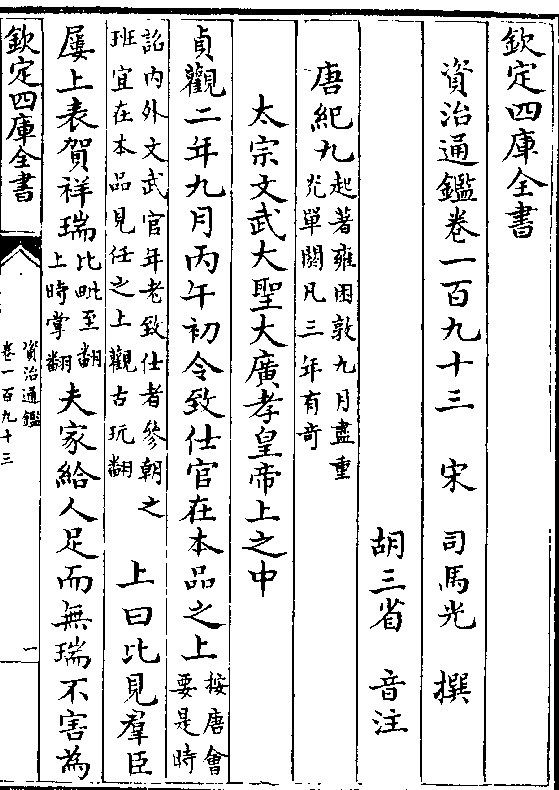 欽定四庫全書
資治通鑑卷一百九十三　宋　司馬光　撰
胡三省　音注
唐紀九起著雍困敦九月盡重
光單閼凡三年有奇
太宗文武大聖大廣孝皇帝上之中
貞觀二年九月丙午初令致仕官在本品之上按唐會
要是時
詔内外文武官年老致仕者參朝之
班宜在本品見任之上觀古玩翻
上曰比見羣臣
屢上表賀祥瑞比毗至翻
上時掌翻
夫家給人足而無瑞不害為
欽定四庫全書
資治通鑑
卷一百九十三
一